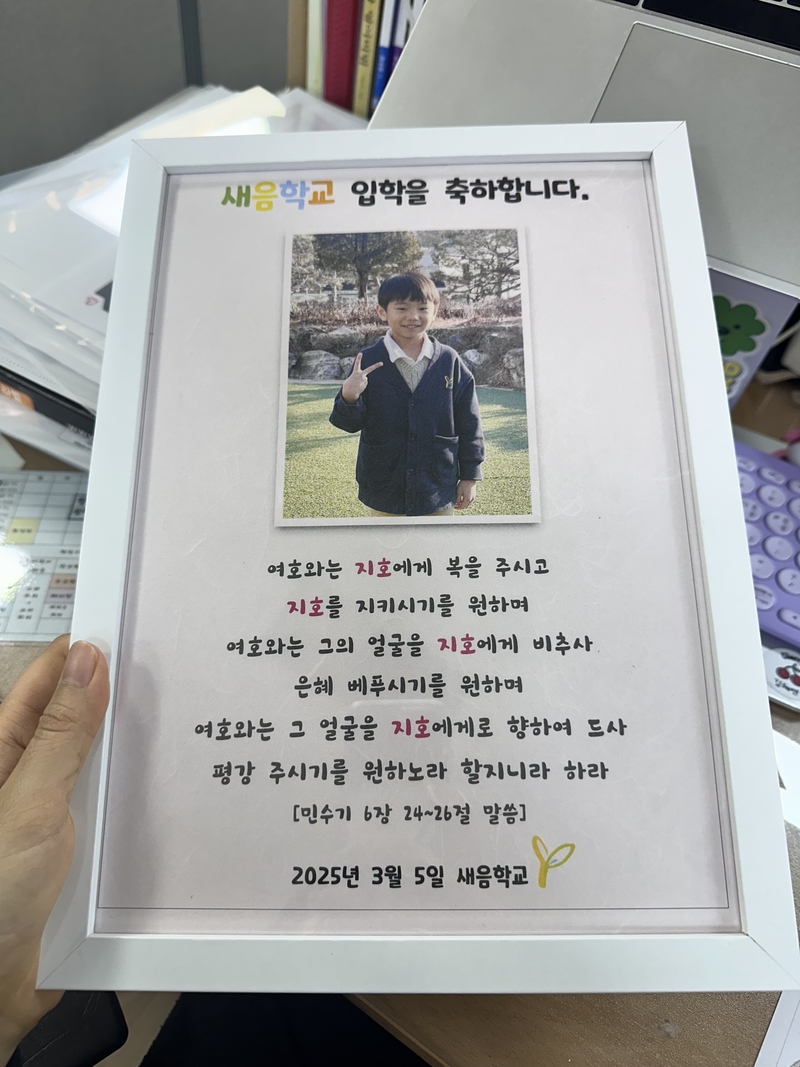 새음학교 입학을 축하합니다.
여호와는 지호에게 복을 주시고
지호를 지키시기를 원하며
여호와는 그의 얼굴을 지호에게 비추사
은혜 베푸시기를 원하며
여호와는 그 얼굴을 지호에게로 향하여 드사
평강 주시기를 원하노라 할지니라 하라
[민수기 6장 24~26절 말씀]
2025년 3월 5일 새음학교